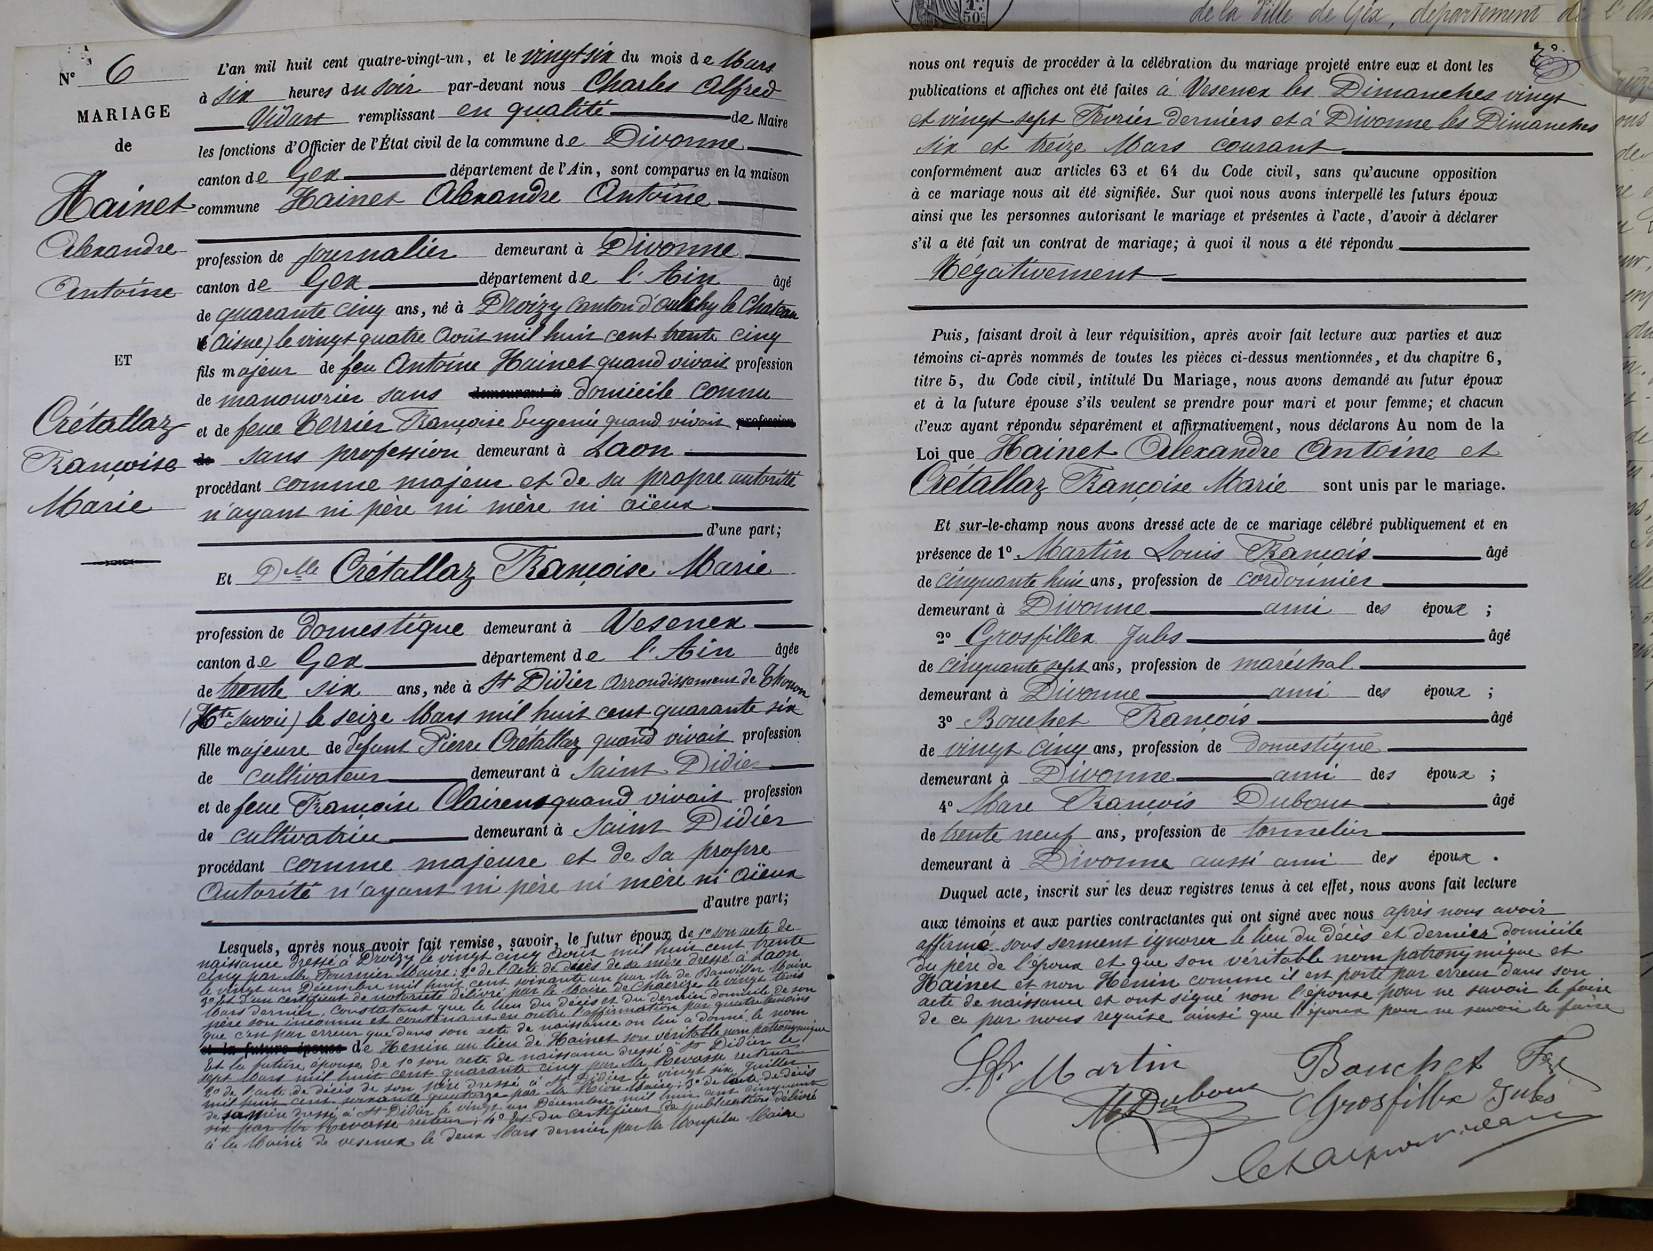 de la Ville de Gex, département de l'Ain
N° 6
MARIAGE
de
Hainet
Alexandre
Antoine
ET
Crétallaz
Françoise
Marie
L'an mil huit cent quatre-vingt-un, et le vingt six du mois de Mars
à six heures du soir par-devant nous Charles Alfred
Vidart remplissant en qualité de Maire
les fonctions d'Officier de l'État civil de la commune de Divonne
canton de Gex département de l'Ain, sont comparus en la maison
commune Hainet Alexandre Antoine
profession de journalier demeurant à Divonne
canton de Gex département de l'Ain âgé
de quarante cinq ans, né à Droizy canton d'Oulchy le Chateau
(Aisne) le vingt quatre Août mil huit cent trente cinq
fils majeur de feu Antoine Hainet quand vivait profession
de manouvrier sans demeurant à domicile connu
et de feue Terrier Françoise Eugenie quand vivait profession
de sans profession demeurant à Laon
procédant comme majeur et de sa propre autorité
n'ayant ni père ni mère ni aïeux
d'une part;
Et Dlle Crétallaz Françoise Marie
profession de domestique demeurant à Vesenex
canton de Gex département de l'Ain âgée
de trente six ans, née à St Didier arrondissement de Thonon
(Hte Savoie) le seize Mars mil huit cent quarante six
fille majeure de défunt Pierre Crétallaz quand vivait profession
de cultivateur demeurant à Saint Didier
et de feue Françoise Clairens quand vivait profession
de cultivatrice demeurant à Saint Didier
procédant comme majeure et de sa propre
autorité n'ayant ni père ni mère ni aïeux
d'autre part;
Lesquels, après nous avoir fait remise, savoir, le futur époux de 1° son acte de
naissance dressé à Droizy le vingt cinq Août mil huit cent trente
cinq par Mr Fournier Maire; 2° de l'acte de décès de sa mère dressé à Laon
le vingt un Décembre mil huit cent soixante un par Mr de Maire
3° et d'un certificat de notoriété délivré par le Maire de Chacrize le vingt trois
Mars dernier, constatant que le lieu du décès et du dernier domicile de son
père son inconnu et contenant en outre l'affirmation par quatre témoins
que c'est par erreur que dans son acte de naissance on lui a donné le nom
et la future épouse de Henin au lieu de Hainet son véritable nom patronymique
Et la future épouse de 1° son acte de naissance dressé à St Didier le
sept Mars mil huit cent quarante cinq par Mr Revasse recteur
2° de l'acte de décès de son père dressé à St Didier le vingt six Juillet
mil huit cent soixante quatorze par Mr Maire; 3° de l'acte de décès
de sa mère dressé à St Didier le vingt un Décembre mil huit cent cinquante
six par Mr Revasse recteur; 4° et du certificat de publication délivré
à la Mairie de vesenex le deux Mars dernier par Mr Maire
nous ont requis de procéder à la célébration du mariage projeté entre eux et dont les
publications et affiches ont été faites à Vesenex les Dimanches vingt
et vingt sept Février derniers et à Divonne les Dimanches
six et treize Mars courant
conformément aux articles 63 et 64 du Code civil, sans qu'aucune opposition
à ce mariage nous ait été signifiée. Sur quoi nous avons interpellé les futurs époux
ainsi que les personnes autorisant le mariage et présentes à l'acte, d'avoir à déclarer
s'il a été fait un contrat de mariage; à quoi il nous a été répondu
Négativement
Puis, faisant droit à leur réquisition, après avoir fait lecture aux parties et aux
témoins ci-après nommés de toutes les pièces ci-dessus mentionnées, et du chapitre 6,
titre 5, du Code civil, intitulé Du Mariage, nous avons demandé au futur époux
et à la future épouse s'ils veulent se prendre pour mari et pour femme; et chacun
d'eux ayant répondu séparément et affirmativement, nous déclarons Au nom de la
Loi que Hainet Alexandre Antoine et
Crétallaz Françoise Marie sont unis par le mariage.
Et sur-le-champ nous avons dressé acte de ce mariage célébré publiquement et en
présence de 1° Martin Louis François âgé
de cinquante huit ans, profession de cordonnier
demeurant à Divonne ami des époux ;
2° Grosfillex Jules âgé
de cinquante sept ans, profession de maréchal
demeurant à Divonne ami des époux ;
3° Bouchet François âgé
de vingt cinq ans, profession de Domestique
demeurant à Divonne ami des époux ;
4° Marc François Dubout âgé
de trente neuf ans, profession de tonnelier
demeurant à Divonne aussi ami des époux .
Duquel acte, inscrit sur les deux registres tenus à cet effet, nous avons fait lecture
aux témoins et aux parties contractantes qui ont signé avec nous après nous avoir
affirmé sous serment ignorer le lieu du décès et dernier domicile
du père de l'époux et que son véritable nom patronymique est
Hainet et non Henin comme il est porté par erreur dans son
acte de naissance et ont signé non l'épouse pour ne savoir le faire
de ce par nous requise ainsi que l'époux pour ne savoir le faire
L. Fr Martin
Bouchet Fçois
M Dubout
Grosfillex Jules